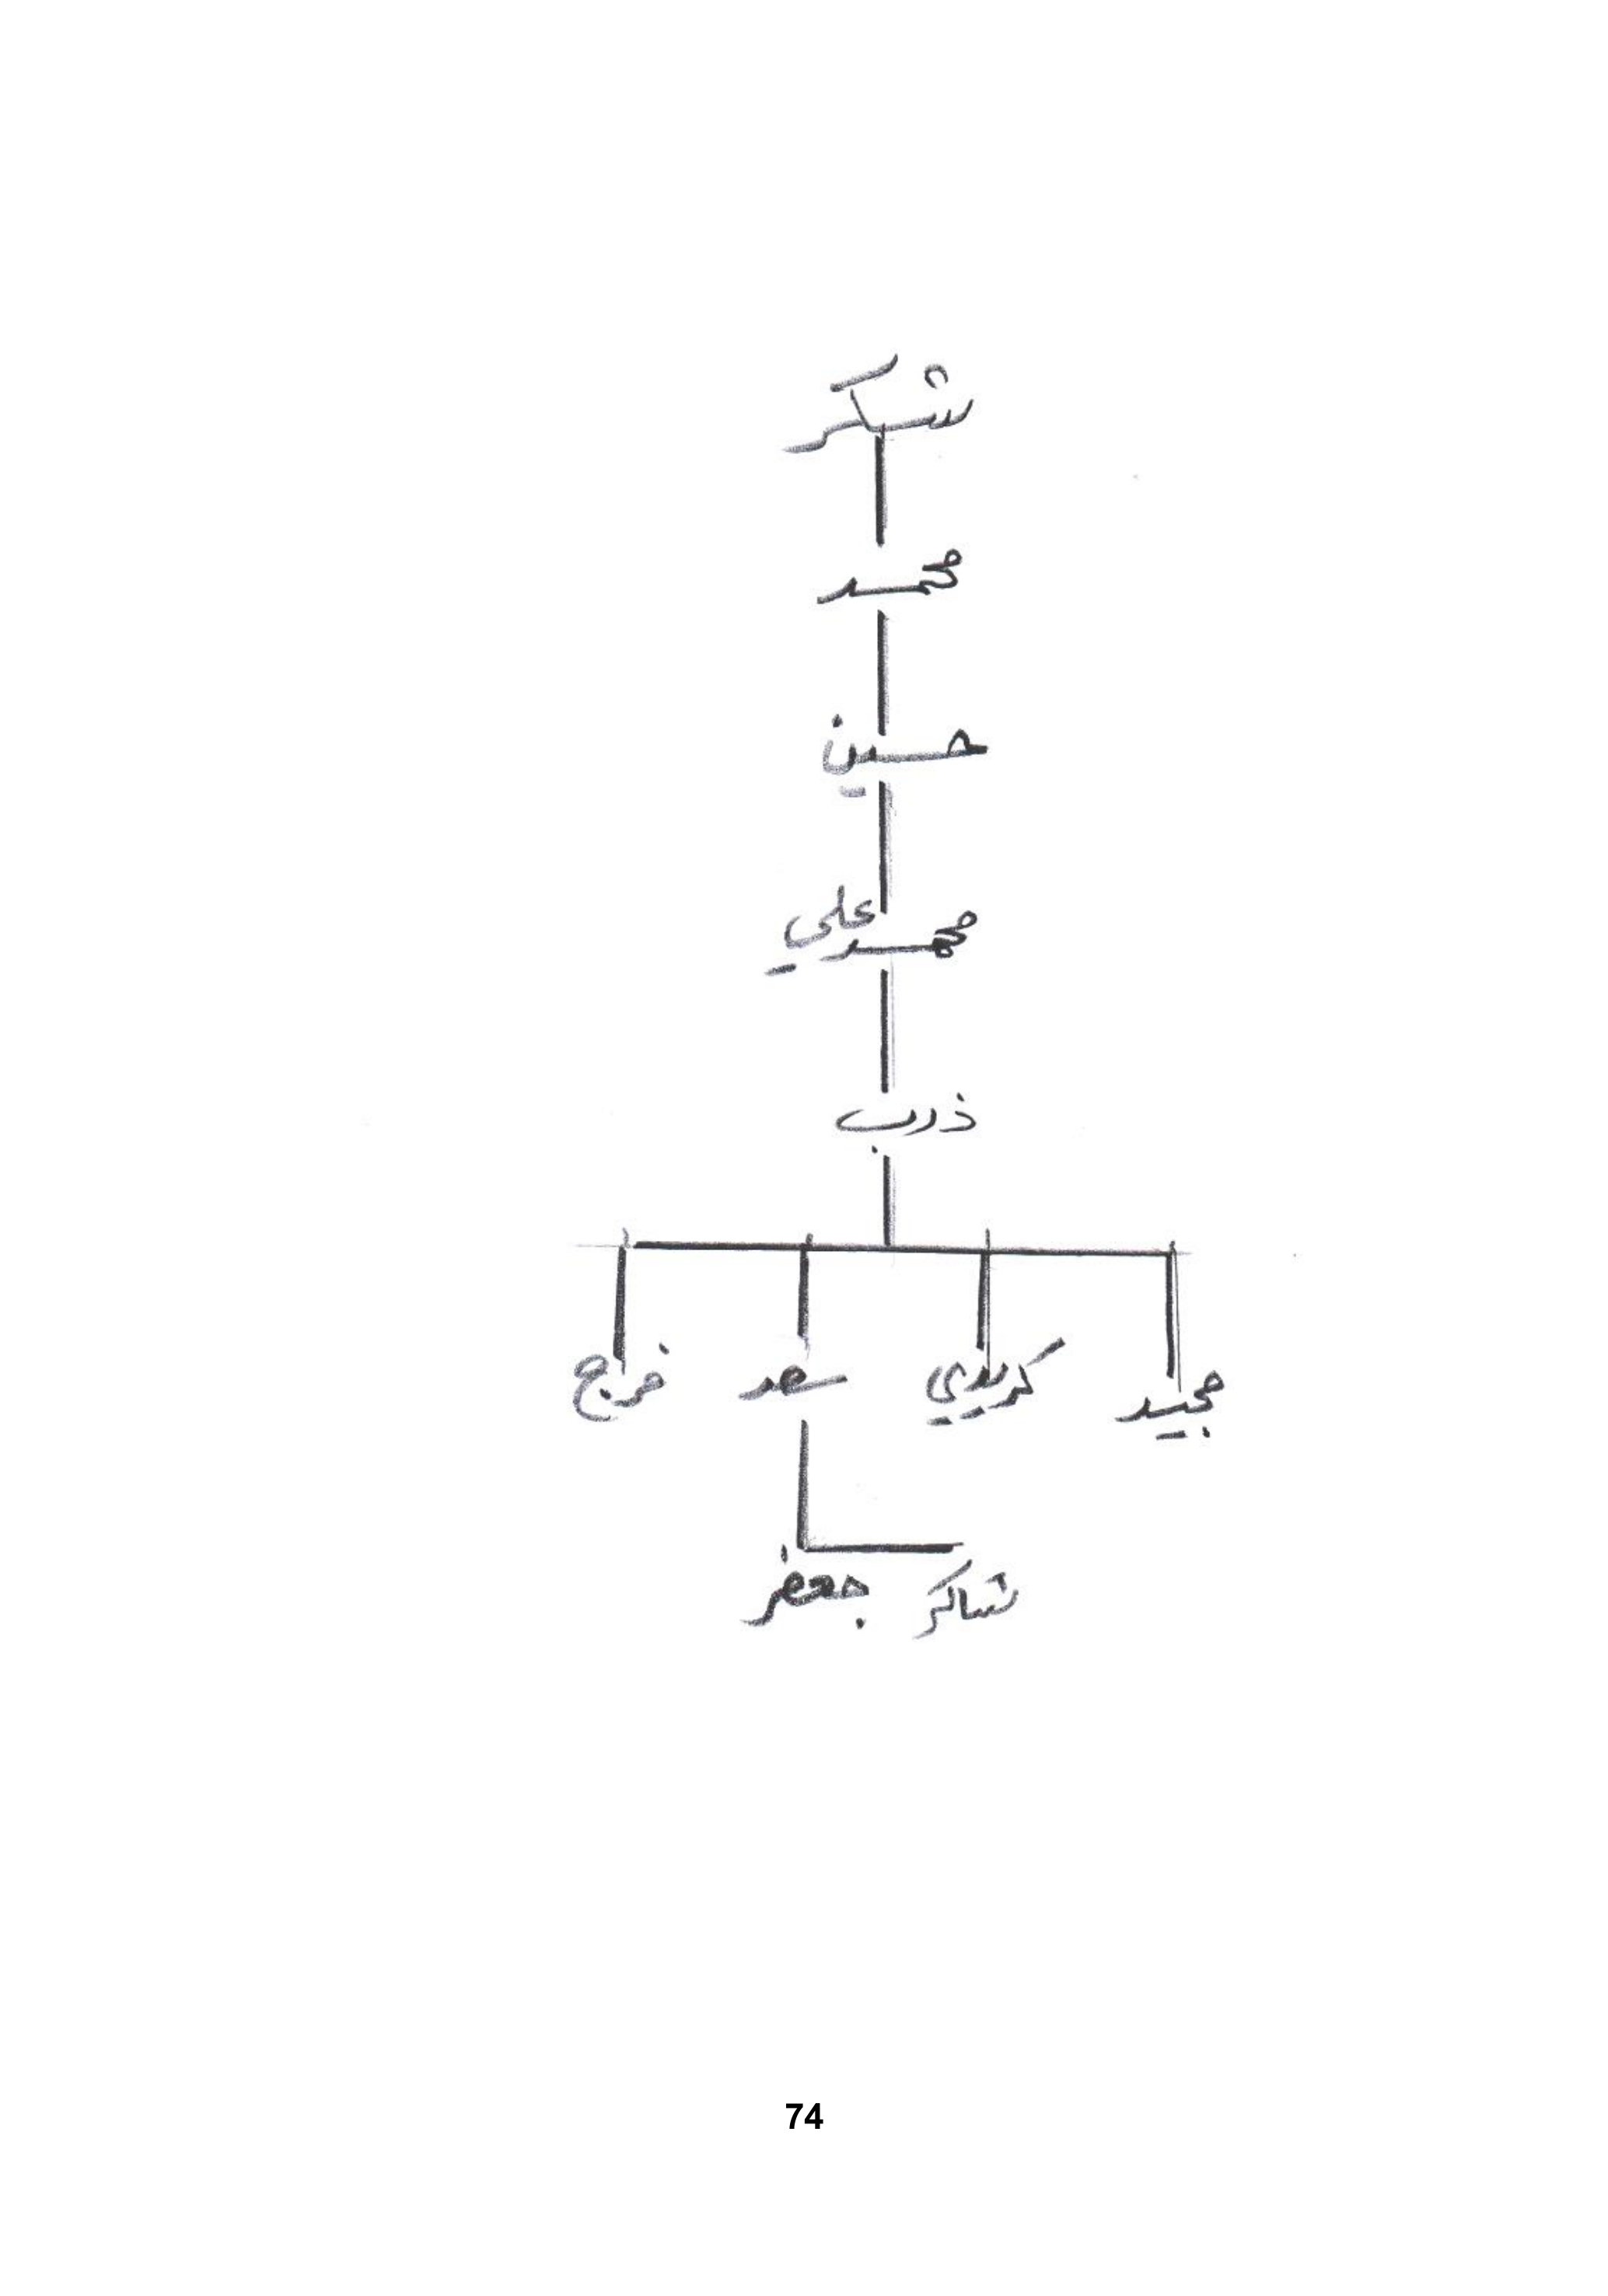 شكر
محمد
حسين
محمد علي
ذرب
مجيد كريدي سعد فرج
شاكر جعفر
74